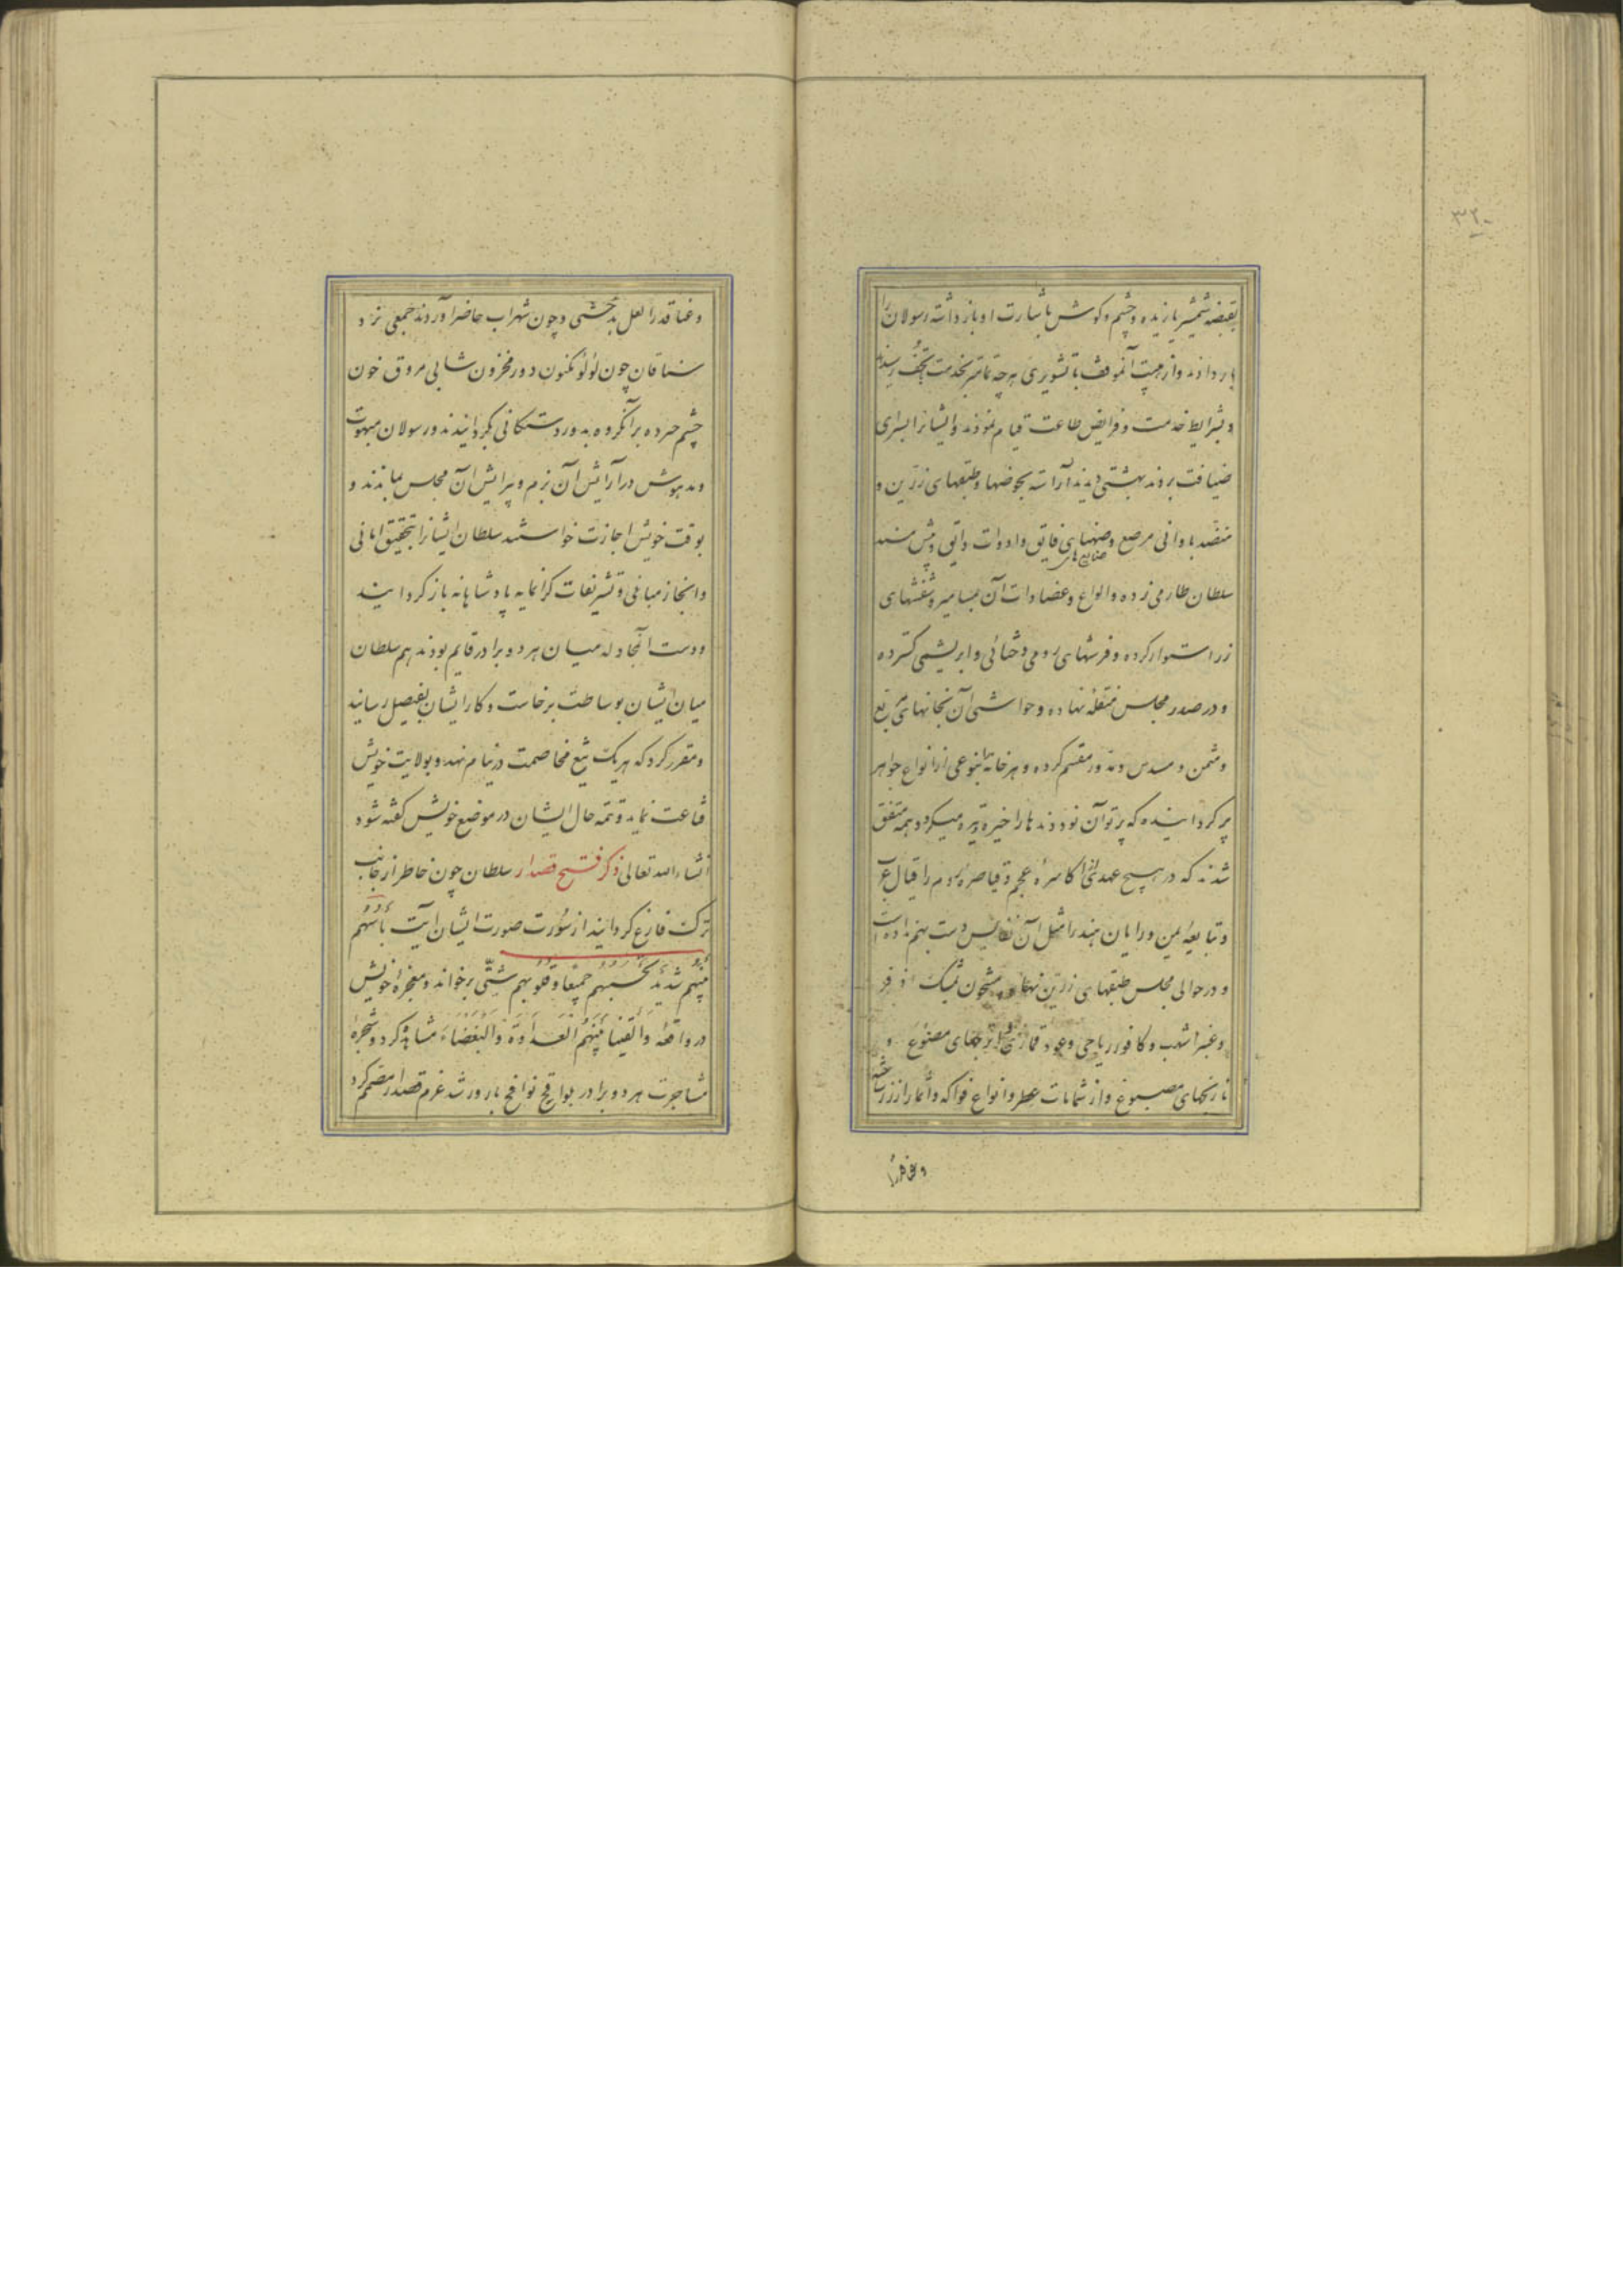 ۳۲۰
بقبضه شمشیر یازیده و چشم و کوش باشارت او باز داشته رسولان را
بار دادند و از هیبت آنموقف با تشویری هرچه تمامتر بخدمت تخت رسیدند
و بشرایط خدمت و فرایض طاعت قیام نمودند و ایشانرا بسرای
ضیافت بردند بهشتی دیدند آراسته بحوضها و طبقهای زرین و
منضد باوانی مرصع و صنهای فایق و ادوات رایق و پیش مسند
صنایع های
سلطان طارمی زده و الواح و عضادات آن بمسامیر و شفشهای
زر استوار کرده و فرشهای رومی و ختائی و ابریشمی کسترده
و در صدر مجلس منقله نهاده و حواشی آن بخانهای مربع
و مثمن و مسدس و مدور مقسم کرده و هر خانه بنوعی از انواع جواهر
پر کردانیده که پرتو آن نور دیدها را خیره و تیره میکرد و همه متفق
شدند که در هیچ عهد اکاسرهٔ عجم و قیاصرهٔ روم را قیال عرب
و تبابعهٔ یمن و رایان هند را مثل آن نفایس دست بهم نداده است
و در حوالی مجلس طبقهای زرین نهاده مشحون بمشک اذفر
و عنبر اشهب و کافور ریاحی و عود قماری و ترنجهای مصنوع و
نارنجهای مصبوغ و از شمامات عطر و انواع فواکه و اثمار از زر ساخته
و عناقدرا
و عناقدرا لعل بدخشی و چون شهراب حاضر آوردند جمعی نزد
سقاقان چون لؤلؤ مکنون و در مخزون شرابی مروق خون
چشم خرده بر آنکروه بدور دستکانی بکردانیدند و رسولان مبهوت
و مدهوش در آرایش آن بزم و پیرایش آن مجلس بماندند و
بوقت خویش اجازت خواستند سلطان ایشانرا بتحقیق امانی
و انجاز مباغی و تشریفات کرانمایه پادشاهانه باز کردانید
و دست آنمجادله میان هر دو برادر قایم بودند هم سلطان
میان ایشان بوساطت برخاست و کار ایشان بفیصل رسانید
و مقرر کرد که هر یک تیغ مخاصمت در نیام نهد و بولایت خویش
قناعت نماید و تتمه حال ایشان در موضع خویش کفته شود
انشاءالله تعالی ذکر فتح قصدار سلطان چون خاطر از جانب
ترک فارغ کردانید از سورت صورت ایشان آیت بأسهم
بینهم شدید تحسبهم جمیعا و قلوبهم شتی برخواند و معجزهٔ خویش
در واقعه و القینا بینهم العداوة و البغضاء مشاهده کرد و شجرهٔ
مشاجرت هر دو برادر بواقح نوافح بارور شد عزم قصدار مصمم کرد